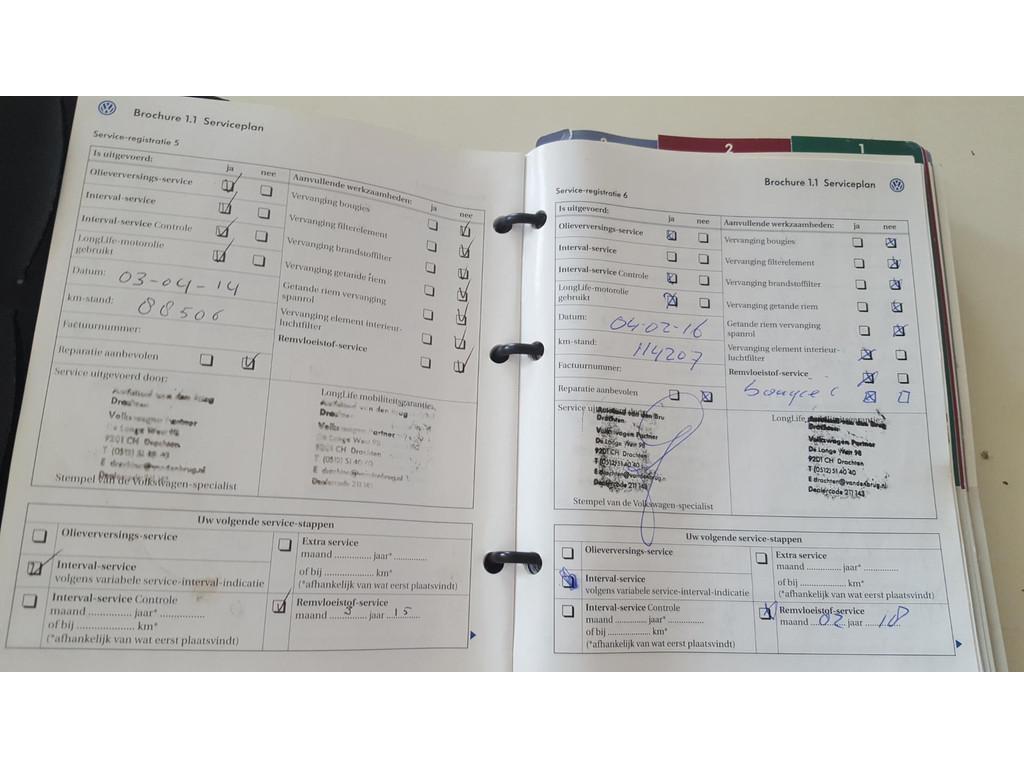 Brochure 1.1 Serviceplan
Service-registratie 5
Is uitgevoerd:
ja nee
Olieverversings-service
Interval-service
Interval-service Controle
LongLife-motorolie
gebruikt
Datum: 03-04-14
km-stand: 88506
Factuurnummer:
Reparatie aanbevolen
Aanvullende werkzaamheden: ja nee
Vervanging bougies
Vervanging filterelement
Vervanging brandstoffilter
Vervanging getande riem
Getande riem vervanging
spanrol
Vervanging element interieur-
luchtfilter
Remvloeistof-service
Service uitgevoerd door:
Volkswagen Partner
De Lange West 98
9201 CH Drachten
Stempel van de Volkswagen-specialist
LongLife mobiliteitsgarantie
De Lange West 98
9201 CH Drachten
Dealercode 211 143
Uw volgende service-stappen
Olieverversings-service
Interval-service
volgens variabele service-interval-indicatie
Interval-service Controle
maand ............... jaar* ...............
of bij ............... km*
(*afhankelijk van wat eerst plaatsvindt)
Extra service
maand ............... jaar* ...............
of bij ............... km*
(*afhankelijk van wat eerst plaatsvindt)
Remvloeistof-service
maand 3 jaar 15
2 1
Brochure 1.1 Serviceplan
Service-registratie 6
Is uitgevoerd:
ja nee
Olieverversings-service
Interval-service
Interval-service Controle
LongLife-motorolie
gebruikt
Datum: 04-02-16
km-stand: 114207
Factuurnummer:
Reparatie aanbevolen
Aanvullende werkzaamheden: ja nee
Vervanging bougies
Vervanging filterelement
Vervanging brandstoffilter
Vervanging getande riem
Getande riem vervanging
spanrol
Vervanging element interieur-
luchtfilter
Remvloeistof-service
Drachten
Volkswagen Partner
De Lange West 98
9201 CH Drachten
T (0512) 51 40 40
E drachten@vandenbrug.nl
Dealercode 211 143
Stempel van de Volkswagen-specialist
Drachten
Volkswagen Partner
De Lange West 98
9201 CH Drachten
T (0512) 51 40 40
E drachten@vandenbrug.nl
Dealercode 211 143
Uw volgende service-stappen
Olieverversings-service
Interval-service
volgens variabele service-interval-indicatie
Interval-service Controle
maand ............... jaar* ...............
of bij ............... km*
(*afhankelijk van wat eerst plaatsvindt)
Extra service
maand ............... jaar* ...............
of bij ............... km*
(*afhankelijk van wat eerst plaatsvindt)
Remvloeistof-service
maand 02 jaar 18